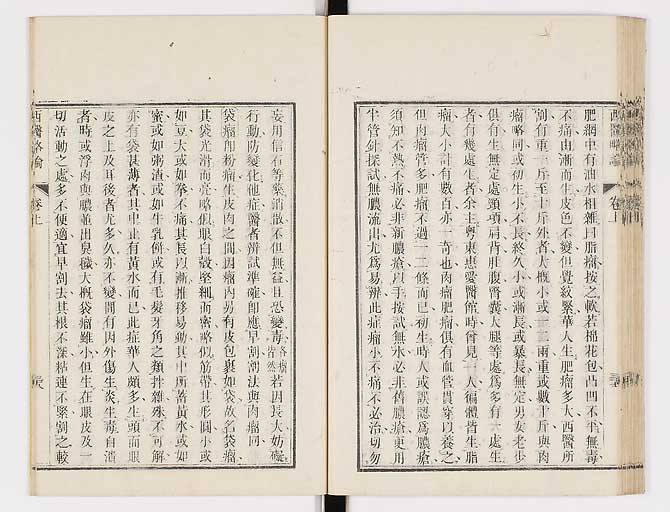 肥網中有油水相雜曰脂瘤按之軟若棉花包凸凹不平無毒
不痛由漸而生皮色不變但覺紋緊華人生肥瘤多大西醫所
割有重十斤至二十斤外者大概小或一二兩重或數十斤與肉
瘤略同或初生小不長終久小或漸長或暴長無定男女老少
俱有生無定處頸項肩背肚腹腎囊大腿等處爲多有一處生
者有幾處生者余主粵東惠愛醫館時曾見一人徧體皆生脂
瘤大小計有數百亦一奇也肉瘤肥瘤俱有血管貫穿以養之
但肉瘤管多肥瘤不過一二條而已初生時人或誤認爲膿瘡
須知不熱不痛必非新膿瘡以手按試無水必非舊膿瘡更用
半管針探試無膿流出尤爲易辨此症瘤小不痛不必治切勿
妄用信石等藥消散不但無益且恐變毒各瘤皆然若因長大妨礙
行動防變化他症醫者辨試準確卽應早割割法與肉瘤同
袋瘤卽粉瘤生皮肉之間因瘤內另有皮包裹如袋故名袋瘤
其袋光滑而亮略似眼白殼堅韌而密略似筋帶其形圓小或
如豆大或如拳不痛其長以漸推移易動其中所蓄黃水或如
蜜或如粥渣或如牛乳餅或有毛髮牙角之類拌雜殊不可解
亦有袋甚薄者其中止有黃水而已此症華人頗多生頭面眼
皮之上及耳後者尤多久亦不變間有因外傷生炎生毒自潰
者時或浮肉與膿並出臭穢大概袋瘤雖小但生在眼皮及一
切活動之處多不便適宜早割去其根不深粘連不緊割之較
西醫略論
卷上